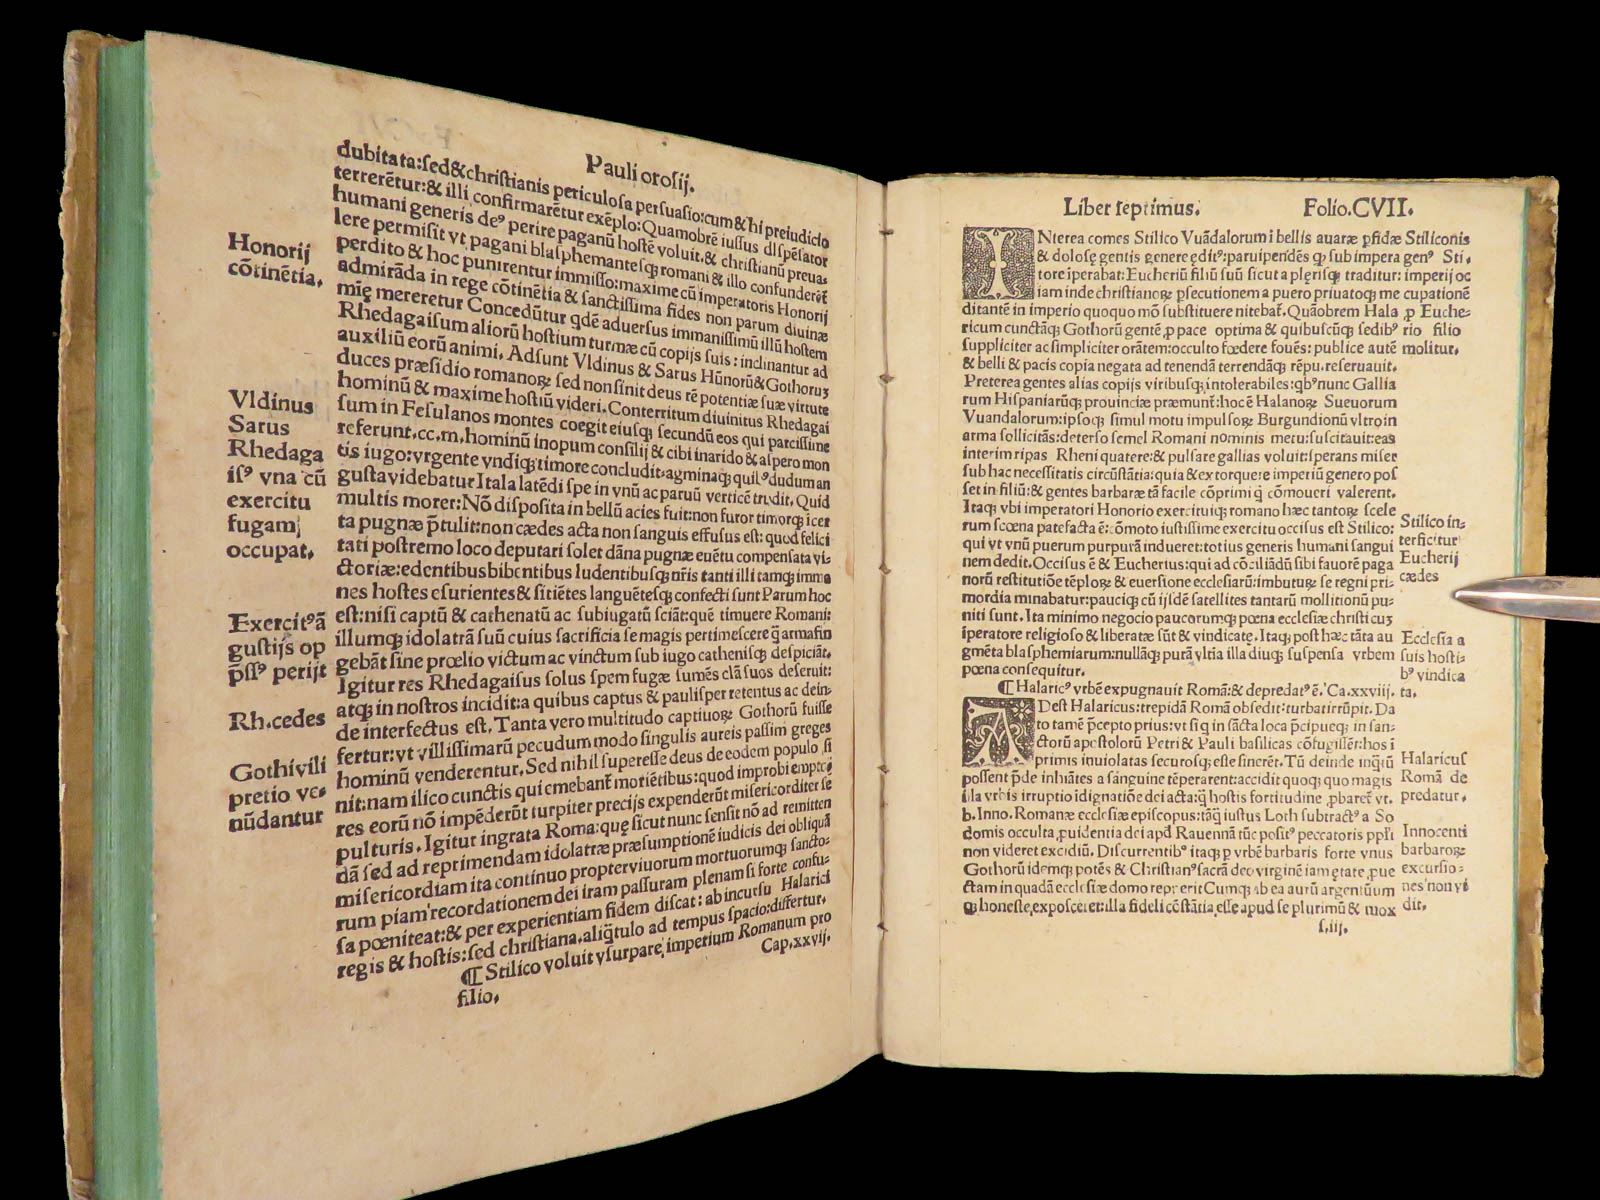 Pauli orosij.
dubitata:sed & christianis periculosa persuasio:cum & hi preiudicio
terrerētur:& illi confirmarētur exēplo:Quamobrē iussus dispēsator
humani generis deꝰ perire paganū hostē voluit.& christianū preua⸗
lere permisit vt pagani blasphemantesqꝫ romani & illo confunderēt̄
perdito & hoc punirentur immisso:maxime cū imperatoris Honorij
admirāda in rege cōtinētia & sanctissima fides non parum diuinæ
mię mereretur Concedūtur qdē aduersus immanissimū illū hostem
Rhedagaisum aliorū hostium turmæ cū copijs suis: inclinantur ad
auxiliū eorū animi. Adsunt Vldinus & Sarus Hūnorū & Gothoruꝫ
duces præsidio romanoꝝ sed non sinit deus rē potentiæ suæ virtute
hominū & maxime hostiū videri. Conterritum diuinitus Rhedagai
sum in Fesulanos montes coegit eiusqꝫ secundū eos qui parcissime
referunt.cc.m.hominū inopum consilij & cibi in arido & aspero mon
tis iugo:vrgente vndiqꝫ timore concludit.agminaqꝫ quibꝰ dudum an
gusta videbatur Itala latēdi spe in vnū ac paruū verticē trudit. Quid
multis morer:Nō disposita in bellū acies fuit:non furor timorqꝫ icer
ta pugnæ p̄tulit:non cædes acta non sanguis effusus est: quod felici
tati postremo loco deputari solet dāna pugnæ euētu compensata vi⸗
ctoriæ:edentibus bibentibus ludentibusqꝫ nr̄is tanti illi tamqꝫ imma
nes hostes esurientes & sitiētes languētesqꝫ confecti sunt Parum hoc
est:nisi captū & cathenatū ac subiugatū sciāt:quē timuere Romani:
illumqꝫ idolatrā suū cuius sacrificia se magis pertimescere q̄ arma fin
gebāt sine prœlio victum ac vinctum sub iugo cathenisqꝫ despiciāt.
Igitur res Rhedagaisus solus spem fugæ sumēs clā suos deseruit:
atqꝫ in nostros incidit:a quibus captus & paulisper retentus ac dein⸗
de interfectus est. Tanta vero multitudo captiuoꝝ Gothorū fuisse
fertur:vt villissimarū pecudum modo singulis aureis passim greges
hominū venderentur. Sed nihil superesse deus de eodem populo si
nit:nam ilico cunctis qui emebant̄ moriētibus:quod improbi emptoꝫ
res eorū nō impēderūt turpiter precijs expenderūt misericorditer se
pulturis. Igitur ingrata Roma:quę sicut nunc sensit nō ad remitten
dā sed ad reprimendam idolatræ præsumptionē iudicis dei obliquā
misericordiam ita continuo propter viuorum mortuorumqꝫ sancto⸗
rum piam recordationem dei iram passuram plenam si forte confu⸗
sa pœniteat:& per experientiam fidem discat: ab incursu Halarici
regis & hostis:sed christiana.aliq̄tulo ad tempus spacio:differtur.
¶ Stilico voluit vsurpare imperium Romanum pro
filio. Cap.xxvij.
Honorij
cōtinētia.
Vldinus
Sarus
Rhedaga
isꝰ vna cū
exercitu
fugam
occupat.
Exercitꝰ ā
gustijs op
p̄ssꝰ perijt
Rh.cedes
Gothi vili
pretio ve⸗
nūdantur
Liber septimus. Folio.CVII.
INterea comes Stilico Vuādalorum i bellis auaræ ꝑfidæ
& dolosę gentis genere ędit⁹:parui pendēs qꝫ sub impera
tore iperabat:Eucheriū filiū suū sicut a plęrisqꝫ traditur:
iam inde christianoꝝ ꝑsecutionem a puero priuatoqꝫ me
ditantē in imperio quoquo mō substituere nitebat̄. Quāobrem Hala
ricum cunctāqꝫ Gothorū gentē ꝓ pace optima & quibuscūqꝫ sedibꝰ
suppliciter ac simpliciter orātem:occulto fœdere fouēs: publice autē
& belli & pacis copia negata ad tenendā terrendāqꝫ rēpu.reseruauit.
Preterea gentes alias copijs viribusqꝫ intolerabiles:qbꝰ nunc Gallia
rum Hispaniarūqꝫ prouinciæ præmunt̄:hoc ē Halanoꝝ Sueuorum
Vuandalorum:ipsoqꝫ simul motu impulsoꝝ Burgundionū vltro in
arma sollicitās:deterso semel Romani nominis metu:suscitauit:eas
interim ripas Rheni quatere:& pulsare gallias voluit:sperans miser
sub hac necessitatis circūstātia: quia & extorquere imperiū genero pos
set in filiū:& gentes barbaræ tā facile cōprimi q̄ cōmoueri valerent.
Itaqꝫ vbi imperatori Honorio exercituiqꝫ romano hæc tantoꝝ scele
rum scœna patefacta ē: cōmoto iustissime exercitu occisus est Stilico:
qui vt vnū puerum purpurā indueret:totius generis humani sangui
nem dedit. Occisus ē & Eucherius:qui ad cōciliādū sibi fauorē paga
norū restitutiōe tēploꝝ & euersione ecclesiarū:imbuturꝫ se regni pri⸗
mordia minabatur:pauciqꝫ cū ijsdē satellites tantarū mollitionū pu⸗
niti sunt. Ita minimo negocio paucorumqꝫ pœna ecclesiæ christi cuꝫ
īperatore religioso & liberatæ sūt & vindicatę. Itaqꝫ post hæc tāta au
gmēta blasphemiarum:nullāqꝫ purā vltīa illa diuqꝫ suspensa vrbem
pœna consequitur.
¶ Halaricꝰ vrbē expugnauit Romā:& depredatꝰ ē. Ca.xxviij.
ADest Halaricus:trepidā Romā obsedit:turbat irrūpit. Da
to tamē p̄cepto prius:vt si q in sācta loca p̄cipueqꝫ in san⸗
ctorū apostolorū Petri & Pauli basilicas cōfugissēt:hos i
primis inuiolatas securosqꝫ esse sinerēt. Tū deinde inq̄tū
possent p̄de inhiātes a sanguine tēperarent:accidit quoqꝫ:quo magis
illa vrbis irruptio īdignatiōe dei acta:q̄ hostis fortitudine ꝓbaret̄ vt.
b.Inno. Romanæ ecclesiæ episcopus: tāq̄ iustus Loth subtractꝰ a So
domis occulta ꝓuidentia dei apd Rauennā tūc positꝰ peccatoris ppl̄i
non videret excidiū. Discurrentibꝰ itaqꝫ ꝑ vrbē barbaris forte vnus
Gothorū idemqꝫ potēs & Christianꝰ sacrā deo virginē iam ętate ꝓue
ctam in quadā ecclesiæ domo reperit Cumqꝫ ab ea aurū argentūum
qꝫ honeste exposceret:illa fideli cōstātia esse apud se plurimū & mox
s.iij.
Stiliconis
gen⁹ Sti.
imperij oc
cupationē
ꝓ Euche⸗
rio filio
molitur.
Stilico in⸗
terficitur
Eucherij
cædes
Ecclesia a
suis hosti⸗
bꝰ vindica
ta.
Halaricus
Romā de
predatur.
Innocenti
barbaroꝝ
excursio⸗
nes non vi
dit.